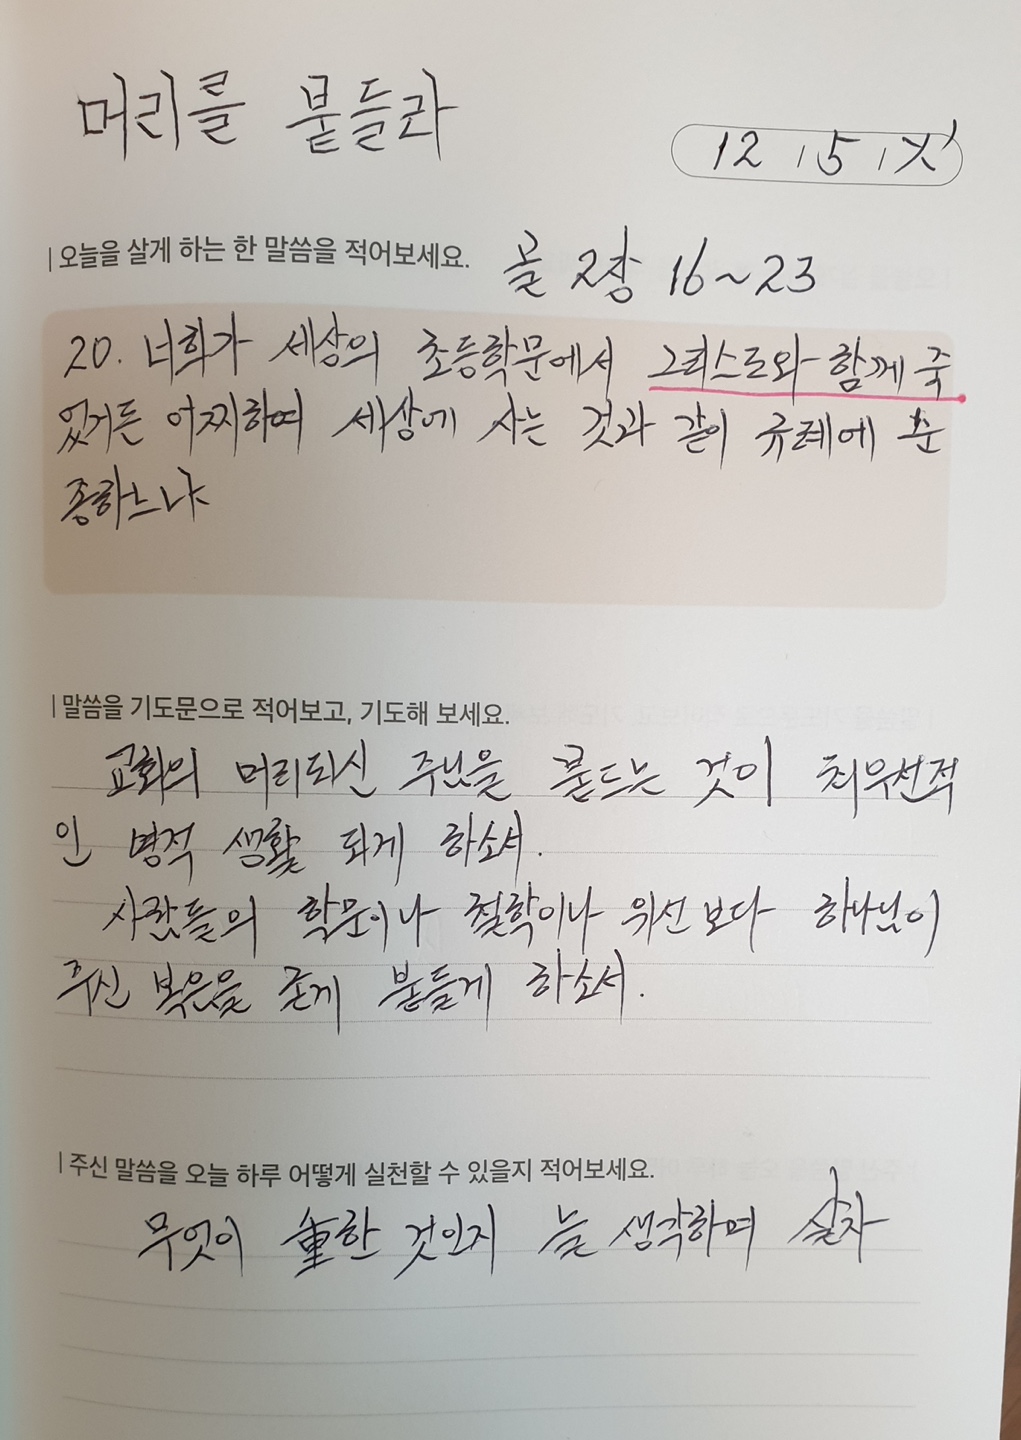 머리를 붙들라
12 / 5 / 
| 오늘을 살게 하는 한 말씀을 적어보세요. 골 2장 16~23
20. 너희가 세상의 초등학문에서 그리스도와 함께 죽
었거든 어찌하여 세상에 사는 것과 같이 규례에 순
종하느냐
| 말씀을 기도문으로 적어보고, 기도해 보세요.
교회의 머리되신 주님을 붙드는 것이 최우선적
인 영적 생활 되게 하소서.
사람들의 학문이나 철학이나 위선보다 하나님이
주신 복음을 굳게 붙들게 하소서.
| 주신 말씀을 오늘 하루 어떻게 실천할 수 있을지 적어보세요.
무엇이 重한 것인지 늘 생각하며 살자